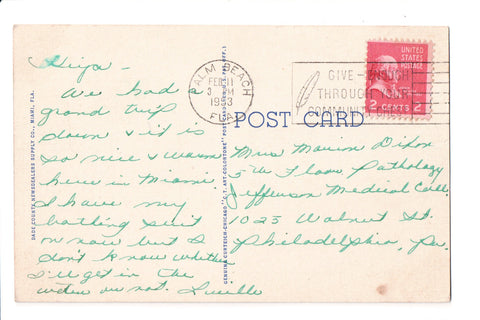 Hiya -
We had
grand trip
down & it is
so nice & warm
here in Miami.
I have my
bathing suit
on now but I
don't know whether
I'll get in the
water or not. Lucille
DADE COUNTY NEWSDEALERS SUPPLY CO., MIAMI, FLA.
GENUINE CURTEICH-CHICAGO "C.T. ART-COLORTONE" POST CARD
PALM BEACH
FEB 11
3 PM
1953
FLA.
GIVE - ENOUGH
THROUGH YOUR
COMMUNITY
UNITED
STATES
POSTAGE
2 CENTS 2
POST CARD
Mrs Marion Dixon
5th Floor Pathology
Jefferson Medical Coll.
1025 Walnut St.
Philadelphia, Pa.